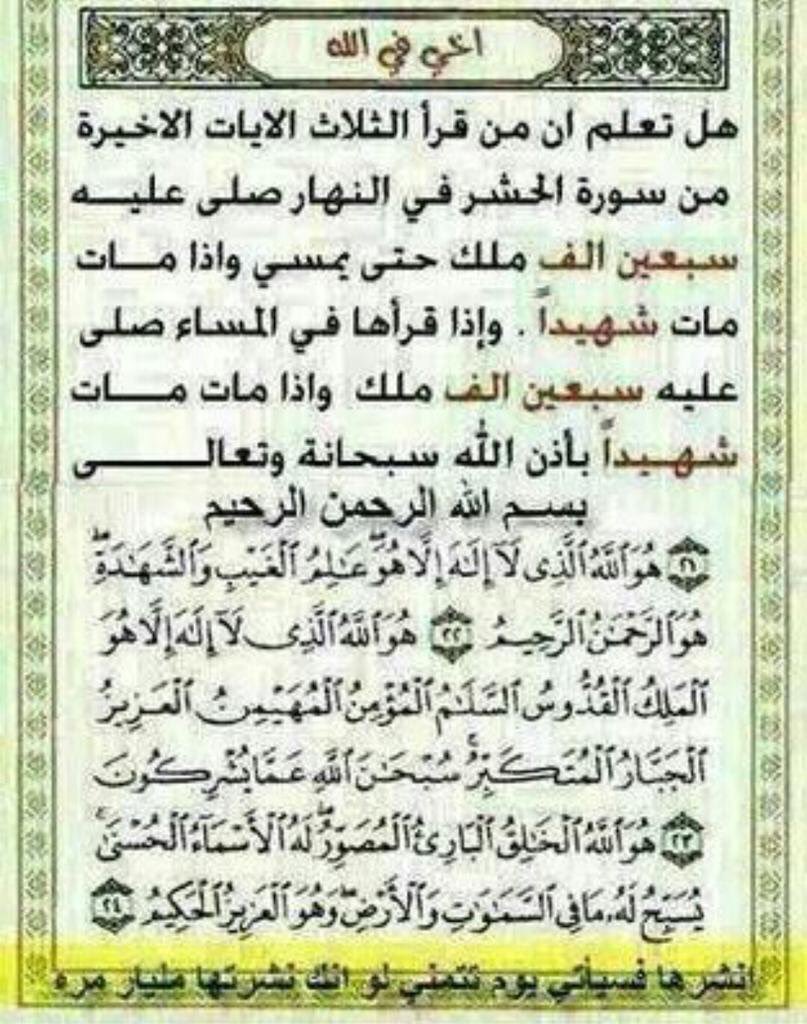 اخي في الله
هل تعلم ان من قرأ الثلاث الايات الاخيرة
من سورة الحشر في النهار صلى عليه
سبعين الف ملك حتى يمسي واذا مات
مات شهيداً . وإذا قرأها في المساء صلى
عليه سبعين الف ملك واذا مات مات
شهيداً بأذن الله سبحانة وتعالى
بسم الله الرحمن الرحيم
٢١ هُوَ ٱللَّهُ ٱلَّذِى لَآ إِلَٰهَ إِلَّا هُوَ ۖ عَٰلِمُ ٱلْغَيْبِ وَٱلشَّهَٰدَةِ ۖ
هُوَ ٱلرَّحْمَٰنُ ٱلرَّحِيمُ ٢٢ هُوَ ٱللَّهُ ٱلَّذِى لَآ إِلَٰهَ إِلَّا هُوَ
ٱلْمَلِكُ ٱلْقُدُّوسُ ٱلسَّلَٰمُ ٱلْمُؤْمِنُ ٱلْمُهَيْمِنُ ٱلْعَزِيزُ
ٱلْجَبَّارُ ٱلْمُتَكَبِّرُ ۚ سُبْحَٰنَ ٱللَّهِ عَمَّا يُشْرِكُونَ
٢٣ هُوَ ٱللَّهُ ٱلْخَٰلِقُ ٱلْبَارِئُ ٱلْمُصَوِّرُ ۖ لَهُ ٱلْأَسْمَآءُ ٱلْحُسْنَىٰ ۚ
يُسَبِّحُ لَهُۥ مَا فِى ٱلسَّمَٰوَٰتِ وَٱلْأَرْضِ ۖ وَهُوَ ٱلْعَزِيزُ ٱلْحَكِيمُ ٢٤
انشرها فسيأتي يوم تتمني لو انك نشرتها مليار مره